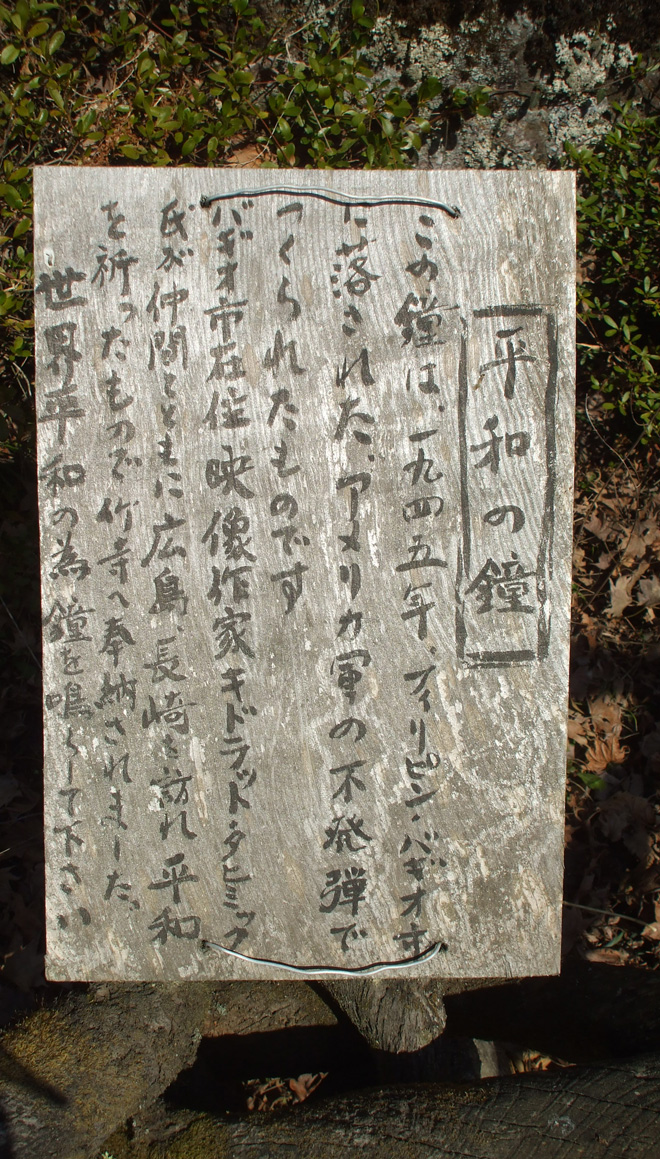 平和の鐘
この鐘は、一九四五年、フィリピン・バギオ市
に落された、アメリカ軍の不発弾で
つくられたものです
バギオ市在住 映像作家キドラット・タヒミック
氏が仲間とともに広島、長崎を訪れ平和
を祈ったもので竹寺へ奉納されました。
世界平和の為 鐘を鳴らして下さい